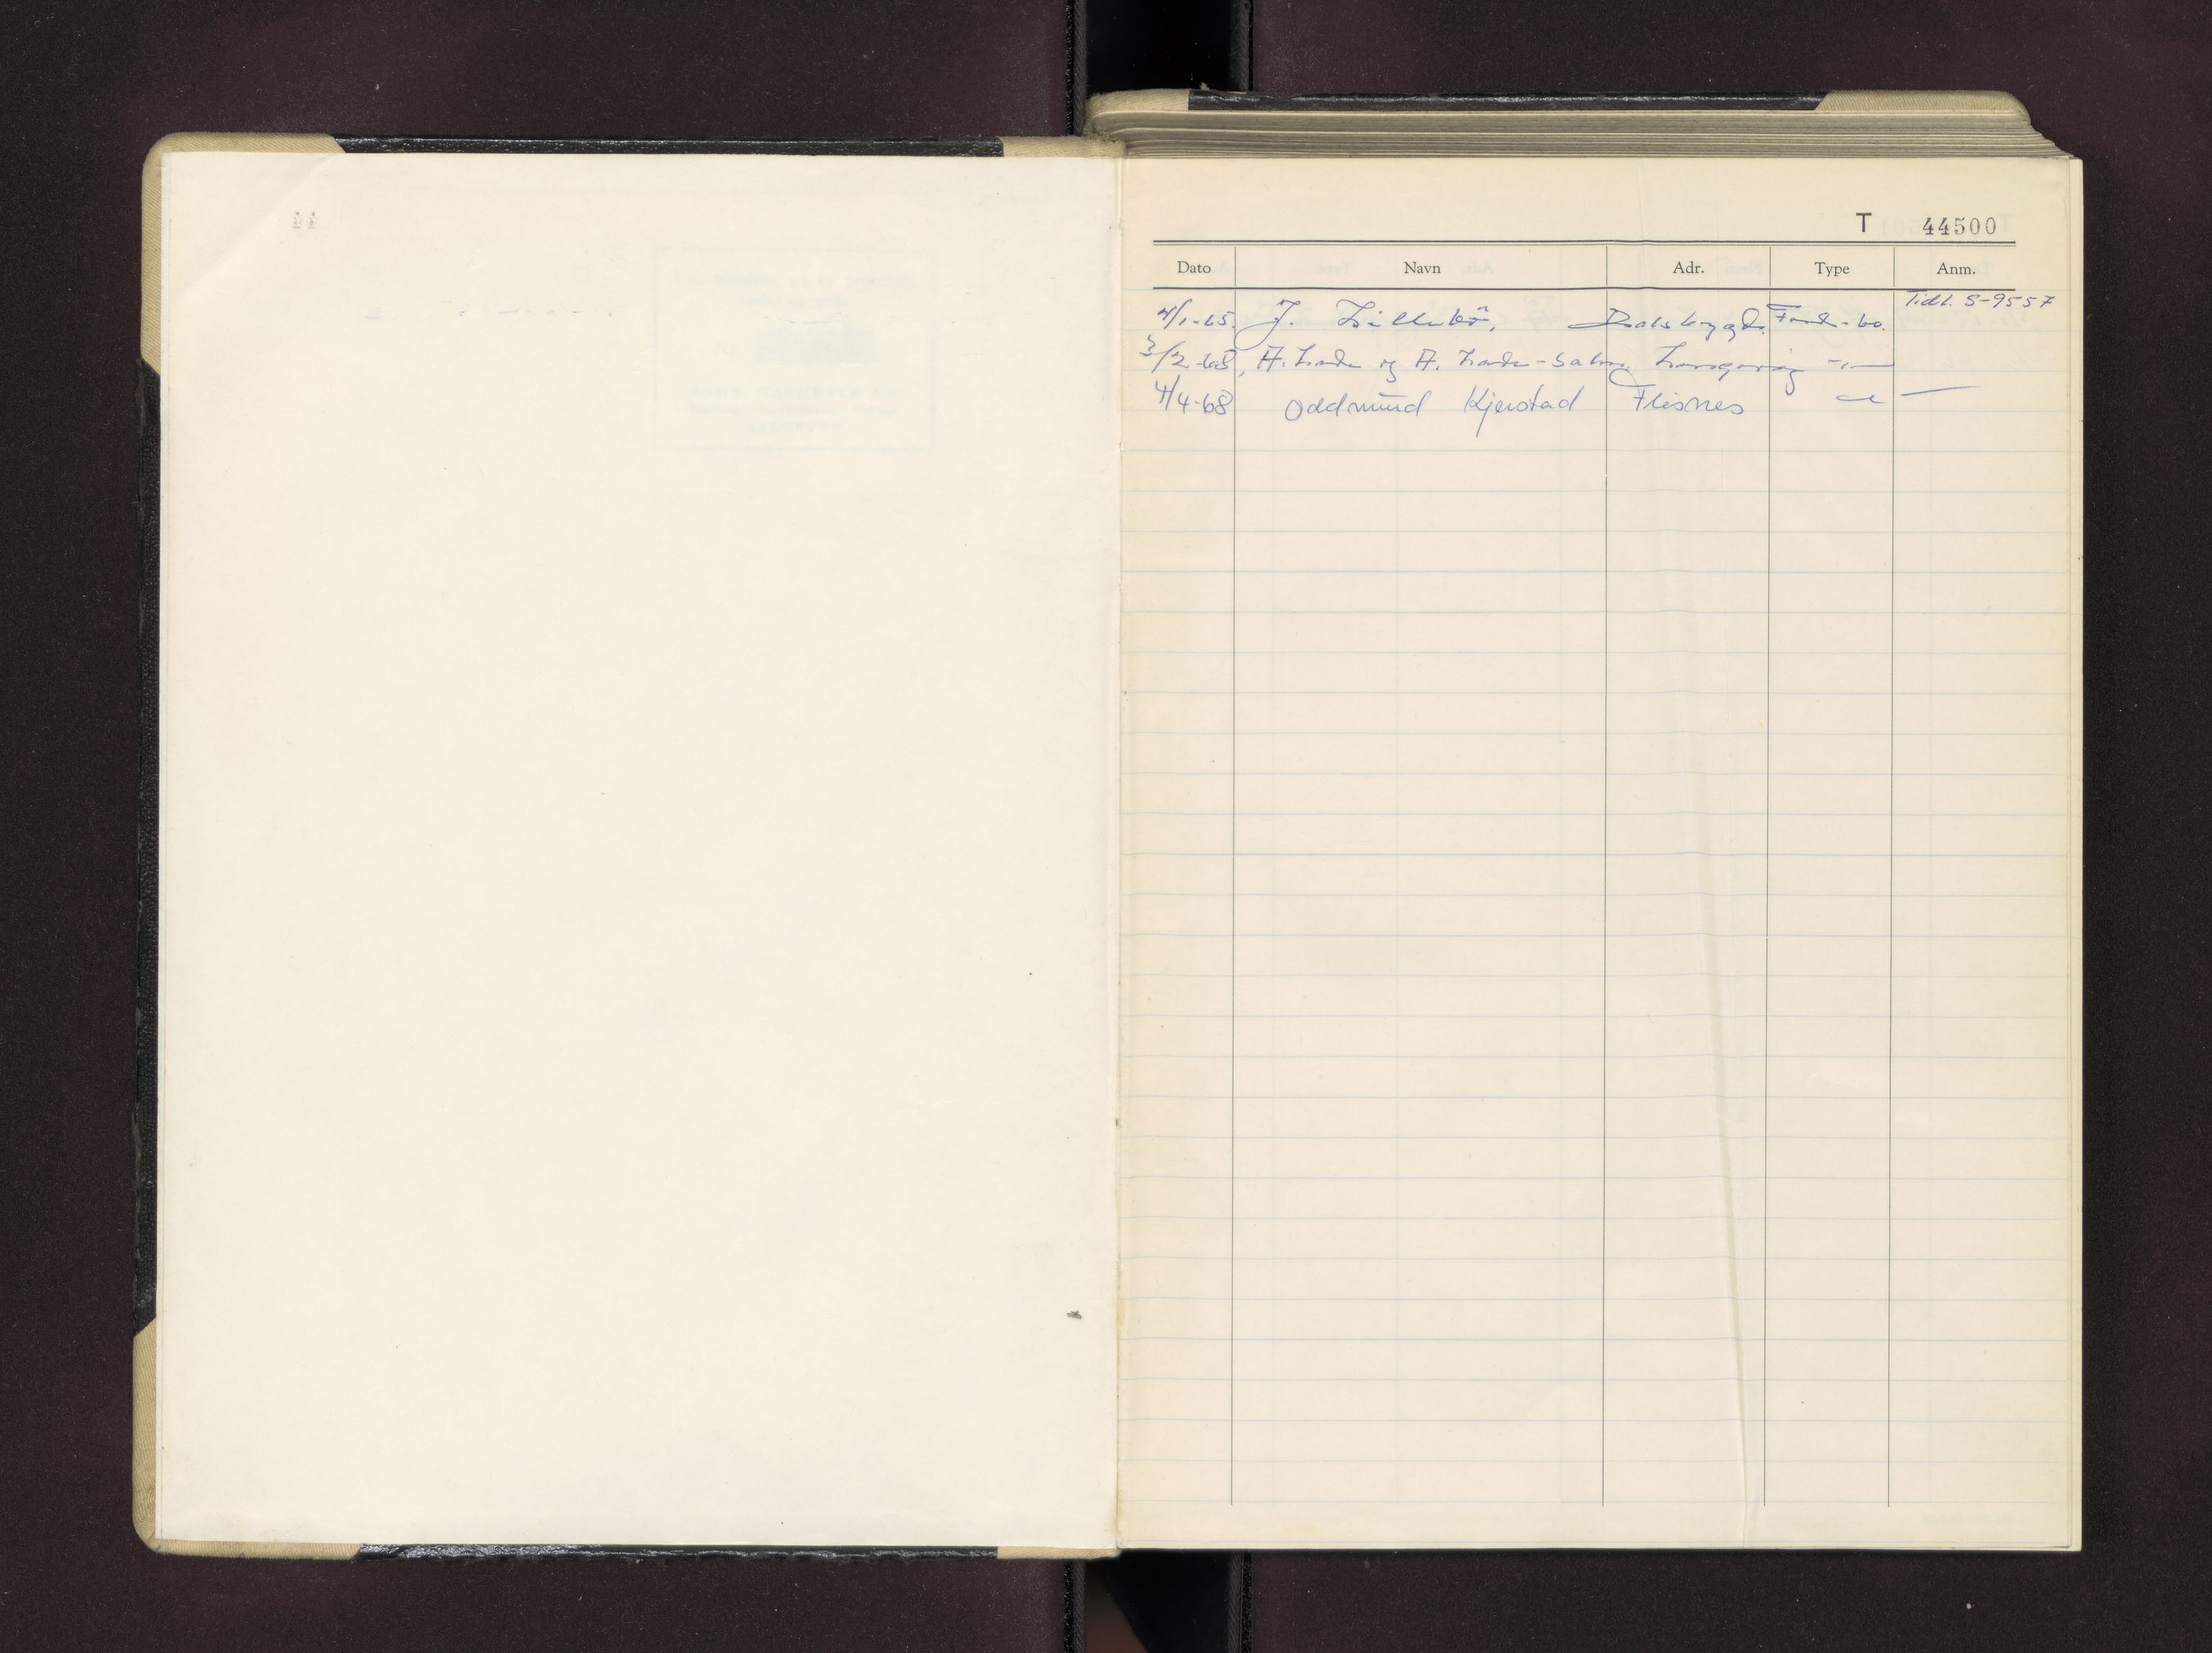 T 44500
Dato Navn Adr. Type Anm.
Tidl. S-9557
4/1-65. J. Lillebø, Dalsbygd. Ford-60.
3/2-68, A. Lade og A. Lade-
4/4-68 Oddmund Kjerstad Flisnes